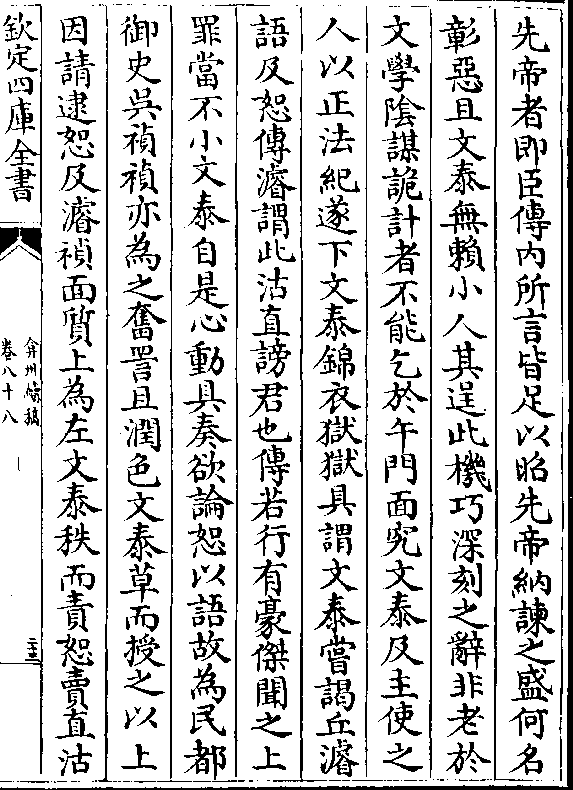 先帝者即臣傳内所言皆足以昭先帝納諫之盛何名
彰惡且文泰無賴小人其逞此機巧深刻之辭非老於
文學陰謀詭計者不能乞於午門面究文泰及主使之
人以正法紀遂下文泰錦衣獄獄具謂文泰嘗謁丘濬
語及恕傳濬謂此沽直謗君也傳若行有豪傑聞之上
罪當不小文泰自是心動具奏欲論恕以語故為民都
御史吳禎禎亦為之奮詈且潤色文泰草而授之以上
因請逮恕及濬禎面質上為左文泰秩而責恕賣直沽
欽定四庫全書
弇州續稿
卷八十八
二十三